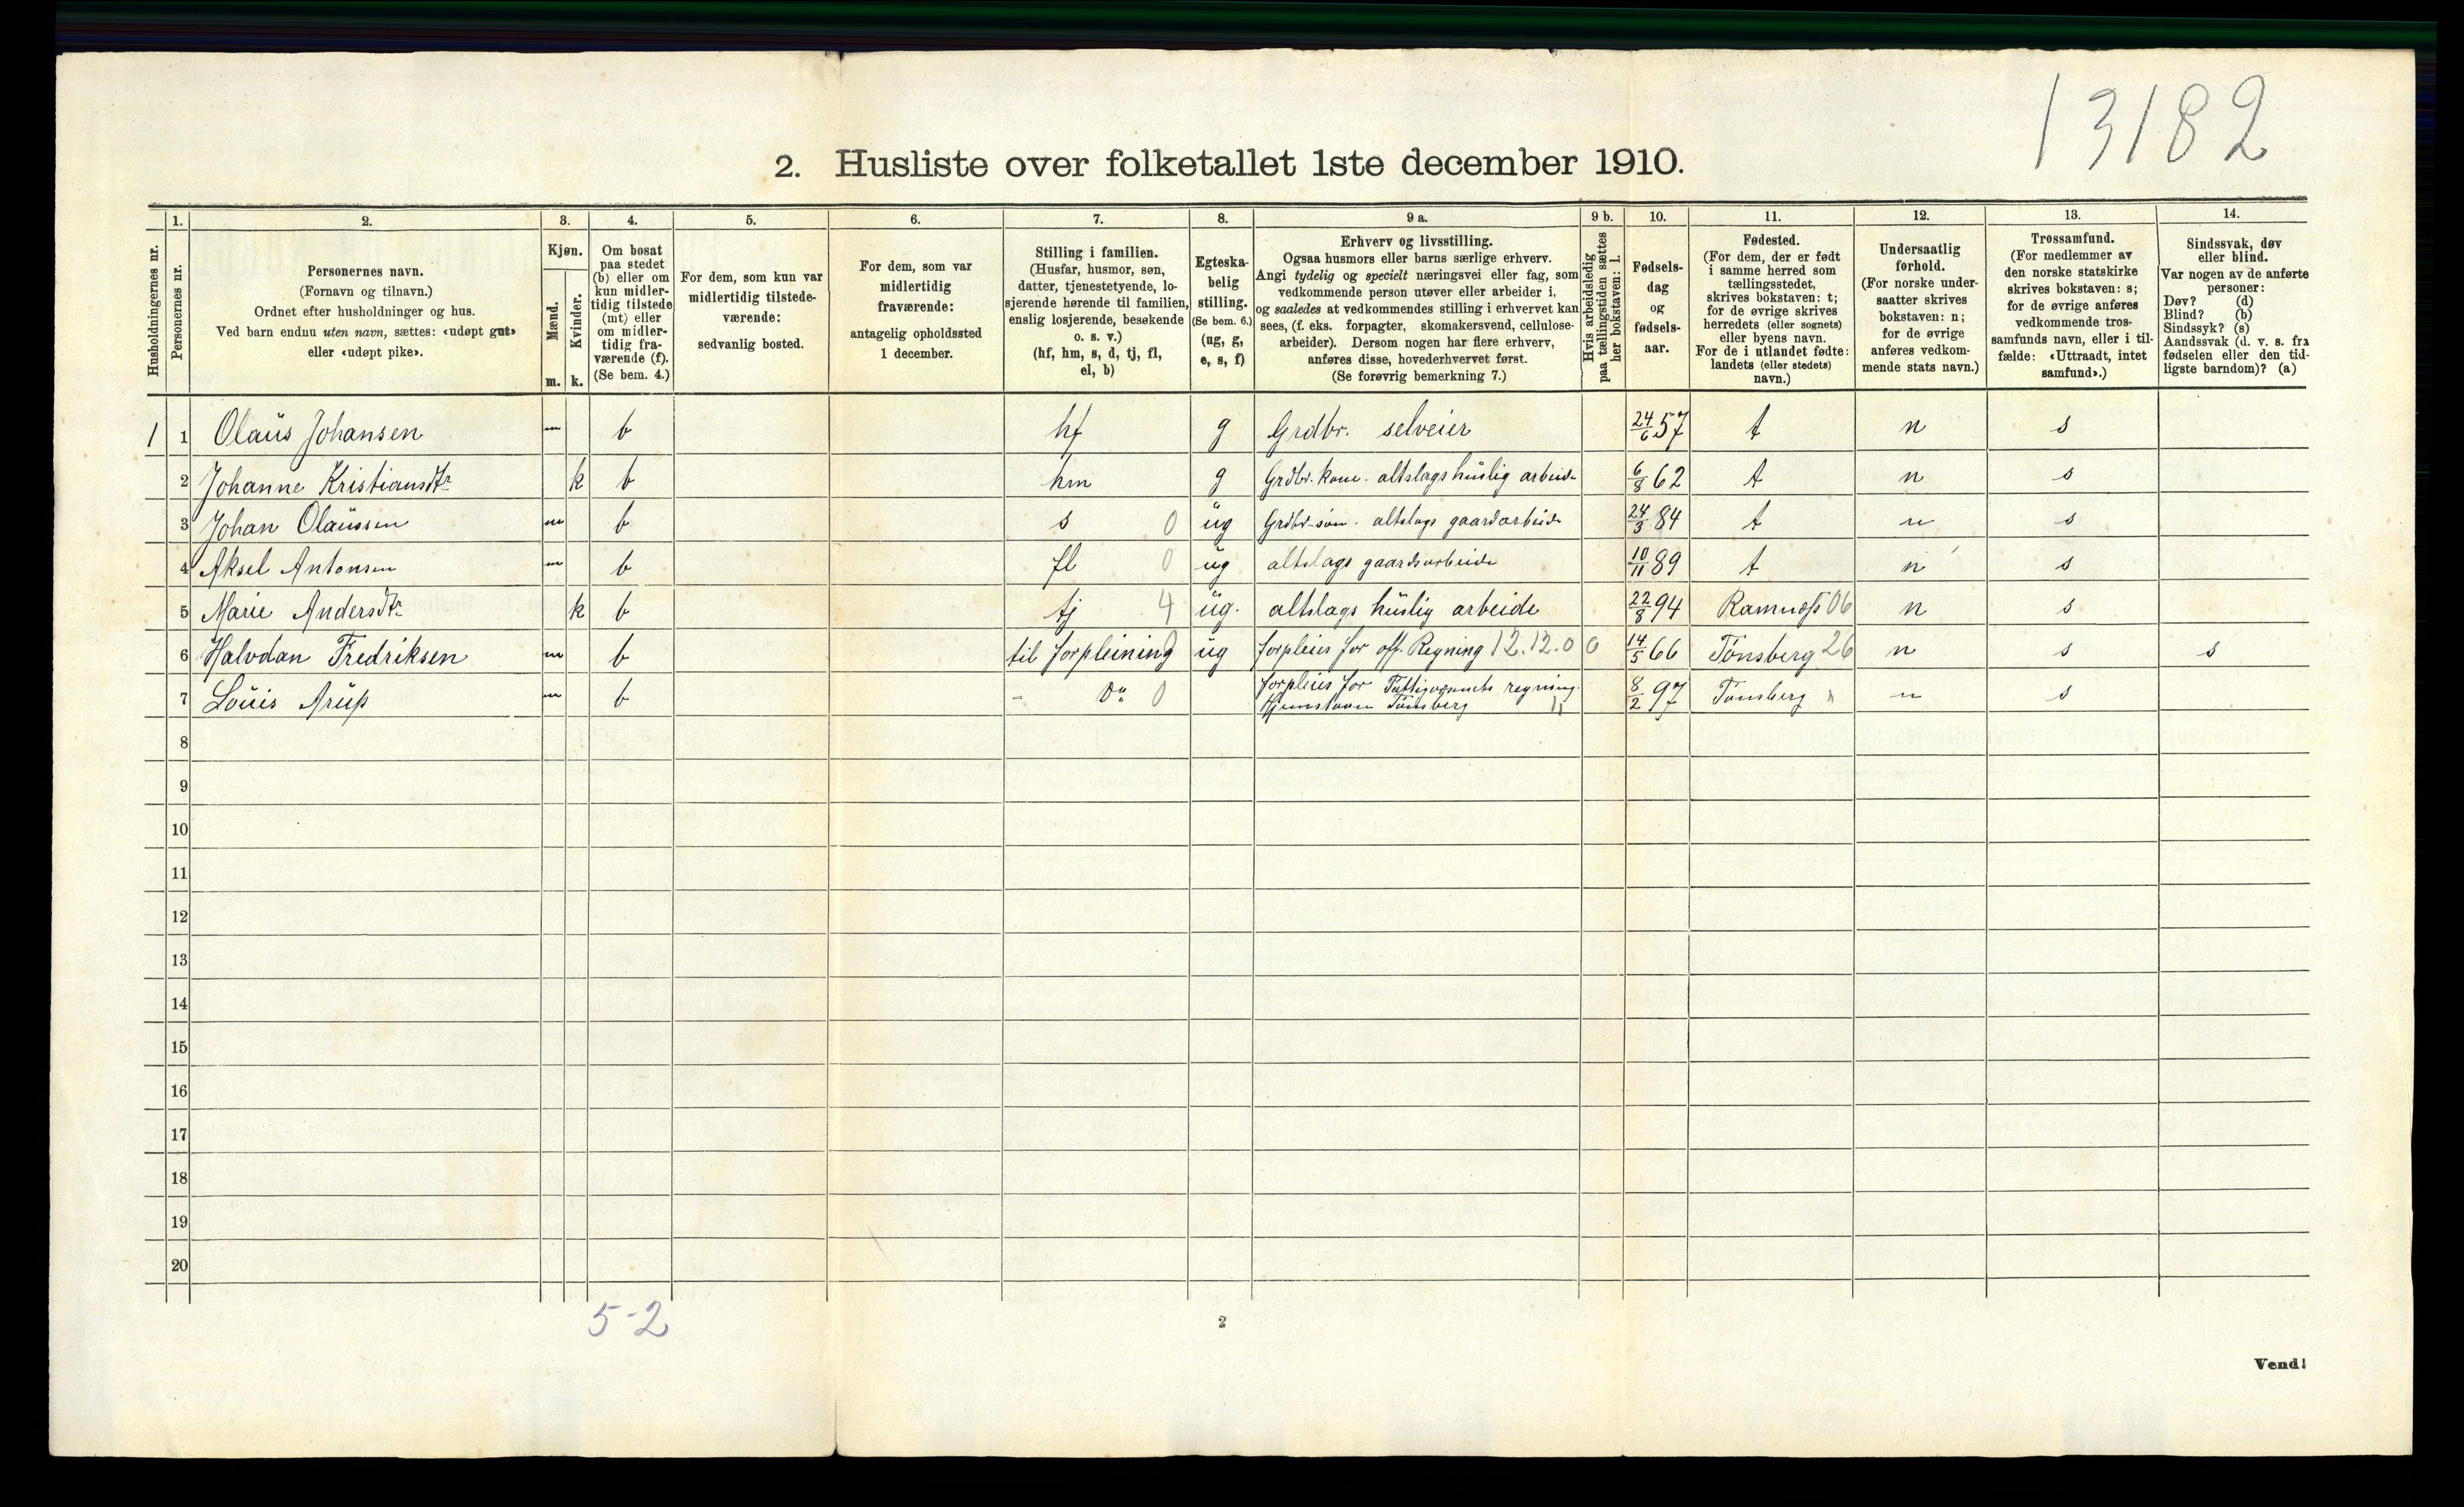 13182
2. Husliste over folketallet 1ste december 1910.
Husholdningernes nr.
1.
Personernes nr.
2.
Personernes navn.
(Fornavn og tilnavn.)
Ordnet efter husholdninger og hus.
Ved barn endnu uten navn, sættes: «udøpt gut»
eller «udøpt pike».
3.
Kjøn.
Mænd.
Kvinder.
m. k.
4.
Om bosat
paa stedet
(b) eller om
kun midler-
tidig tilstede
(mt) eller
om midler-
tidig fra-
værende (f).
(Se bem. 4.)
5.
For dem, som kun var
midlertidig tilstede-
værende:
sedvanlig bosted.
6.
For dem, som var
midlertidig
fraværende:
antagelig opholdssted
1 december.
7.
Stilling i familien.
(Husfar, husmor, søn,
datter, tjenestetyende, lo-
sjerende hørende til familien,
enslig losjerende, besøkende
o. s. v.)
(hf, hm, s, d, tj, fl,
el, b)
8.
Egteska-
belig
stilling.
(Se bem. 6.)
(ug, g,
e, s, f)
9 a.
Erhverv og livsstilling.
Ogsaa husmors eller barns særlige erhverv.
Angi tydelig og specielt næringsvei eller fag, som
vedkommende person utøver eller arbeider i,
og saaledes at vedkommendes stilling i erhvervet kan
sees, (f. eks. forpagter, skomakersvend, cellulose-
arbeider). Dersom nogen har flere erhverv,
anføres disse, hovederhvervet først.
(Se forøvrig bemerkning 7.)
9 b.
Hvis arbeidsledig
paa tællingstiden sættes
her bokstaven: l.
10.
Fødsels-
dag
og
fødsels-
aar.
11.
Fødested.
(For dem, der er født
i samme herred som
tællingsstedet,
skrives bokstaven: t;
for de øvrige skrives
herredets (eller sognets)
eller byens navn.
For de i utlandet fødte:
landets (eller stedets)
navn.)
12.
Undersaatlig
forhold.
(For norske under-
saatter skrives
bokstaven: n;
for de øvrige
anføres vedkom-
mende stats navn.)
13.
Trossamfund.
(For medlemmer av
den norske statskirke
skrives bokstaven: s;
for de øvrige anføres
vedkommende tros-
samfunds navn, eller i til-
fælde: «Uttraadt, intet
samfund».)
14.
Sindssvak, døv
eller blind.
Var nogen av de anførte
personer:
Døv? (d)
Blind? (b)
Sindssyk? (s)
Aandssvak (d. v. s. fra
fødselen eller den tid-
ligste barndom)? (a)
1 1 Olaüs Johansen m b hf g Grdbr. selveier 24/6 57 t n s
2 Johanne Kristiansdtr k b hm g Grdbr. kone. altslags hüslig arbeide 6/8 62 t n s
3 Johan Olaüssen m b s 0 üg Grdbr søn. altslags gaardsarbeide 24/3 84 t n s
4 Aksel Antonsen m b fl 0 üg altslags gaardsarbeide 10/11 89 t n s
5 Marie Andersdtr k b tj 4 üg. altslags hüslig arbeide 22/8 94 Ramnæs 06 n s
6 Halvdan Fredriksen m b til forpleining 0 üg forpleies for off. Regning 12.12.0 0 14/5 66 Tönsberg 26 n s s
7 Loüis Arüp m b - Do 0 forpleies for Fattigvæsnets regning. Hjemstavn Tönsberg 8/2 97 Tönsberg n s
8
9
10
11
12
13
14
15
16
17
18
19
20
5-2
2
Vend!